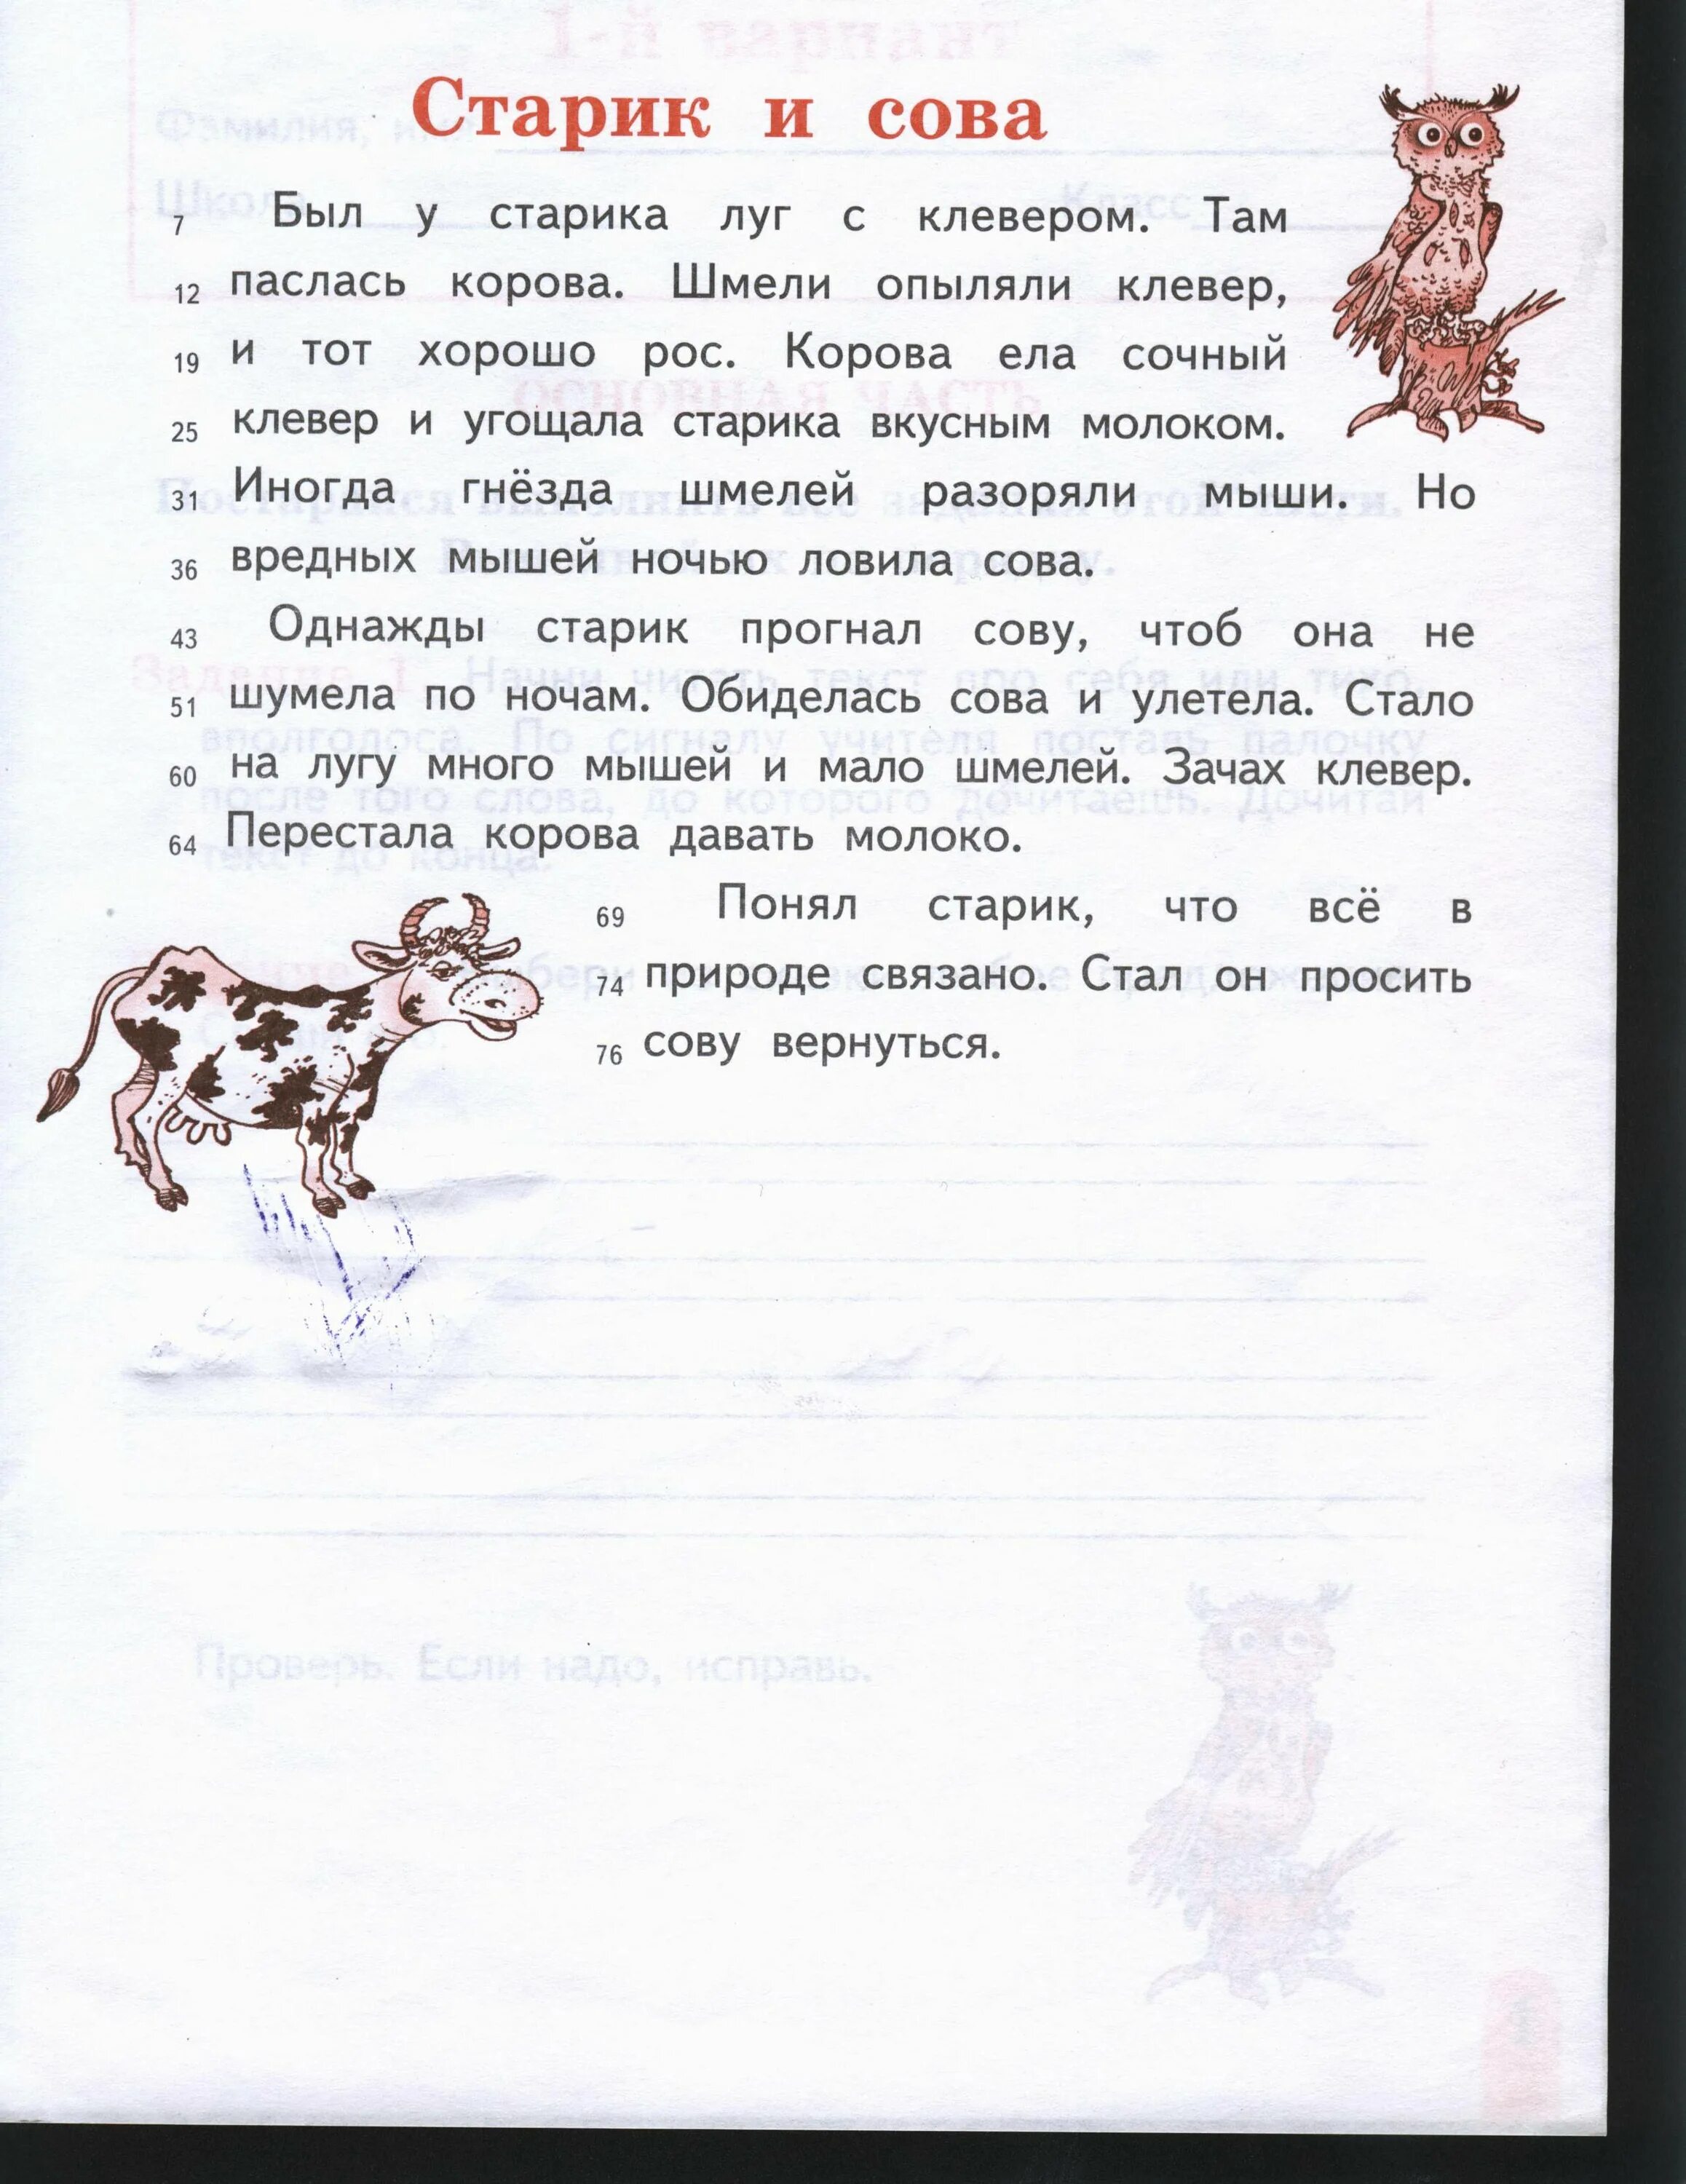 Старик и сова
7 Был у старика луг с клевером. Там
12 паслась корова. Шмели опыляли клевер,
19 и тот хорошо рос. Корова ела сочный
25 клевер и угощала старика вкусным молоком.
31 Иногда гнёзда шмелей разоряли мыши. Но
36 вредных мышей ночью ловила сова.
43 Однажды старик прогнал сову, чтоб она не
51 шумела по ночам. Обиделась сова и улетела. Стало
60 на лугу много мышей и мало шмелей. Зачах клевер.
64 Перестала корова давать молоко.
69 Понял старик, что всё в
74 природе связано. Стал он просить
76 сову вернуться.
Проверь. Если надо, исправь.